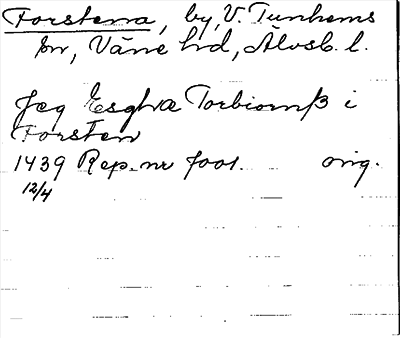 Forstena, by, V. Tunhems
sn, Väne hd, Älvsb. l.
Jeg Esghæ Torbiornß i
Forsten
1439 Rep. nr 7001. orig.
12/4